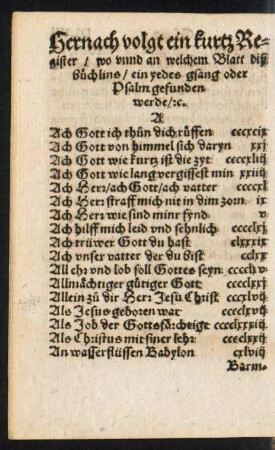 Hernach volgt ein kurtz Re-
gister / wo vnnd an welchem Blatt diß
büchlins / ein yedes gsang oder
Psalm gefunden
werde /ꝛc.
A
Ach Gott ich thün dich rüffen ccccxcix
Ach Gott von himmel sich daryn xxj
Ach Gott wie kurtz ist die zyt ccccxliij
Ach Gott wie lang vergissest min xxiiij
Ach Her: / ach Gott / ach vatter ccccxl
Ach Her: straff mich nit in dim zorn ix
Ach Her: wie sind minr fynd v
Ach hilff mich leid vnd sehnlich cccclij
Ach trüwer Gott du hast clxxxix
Ach vnser vatter der du bist cclxx
All ehr vnd lob soll Gottes seyn ccccliij
Allmächtiger gütiger Gott cccclxxij
Allein zü dir Her: Jesu Christ ccccxlvij
Als Jesus geboren war ccccclvij
Als Job der Gottsförchtigt cccclxxxiij
Als Christus mit siner lehr cccclxxij
An wasserflüssen Babylon cxlviij
Barm-